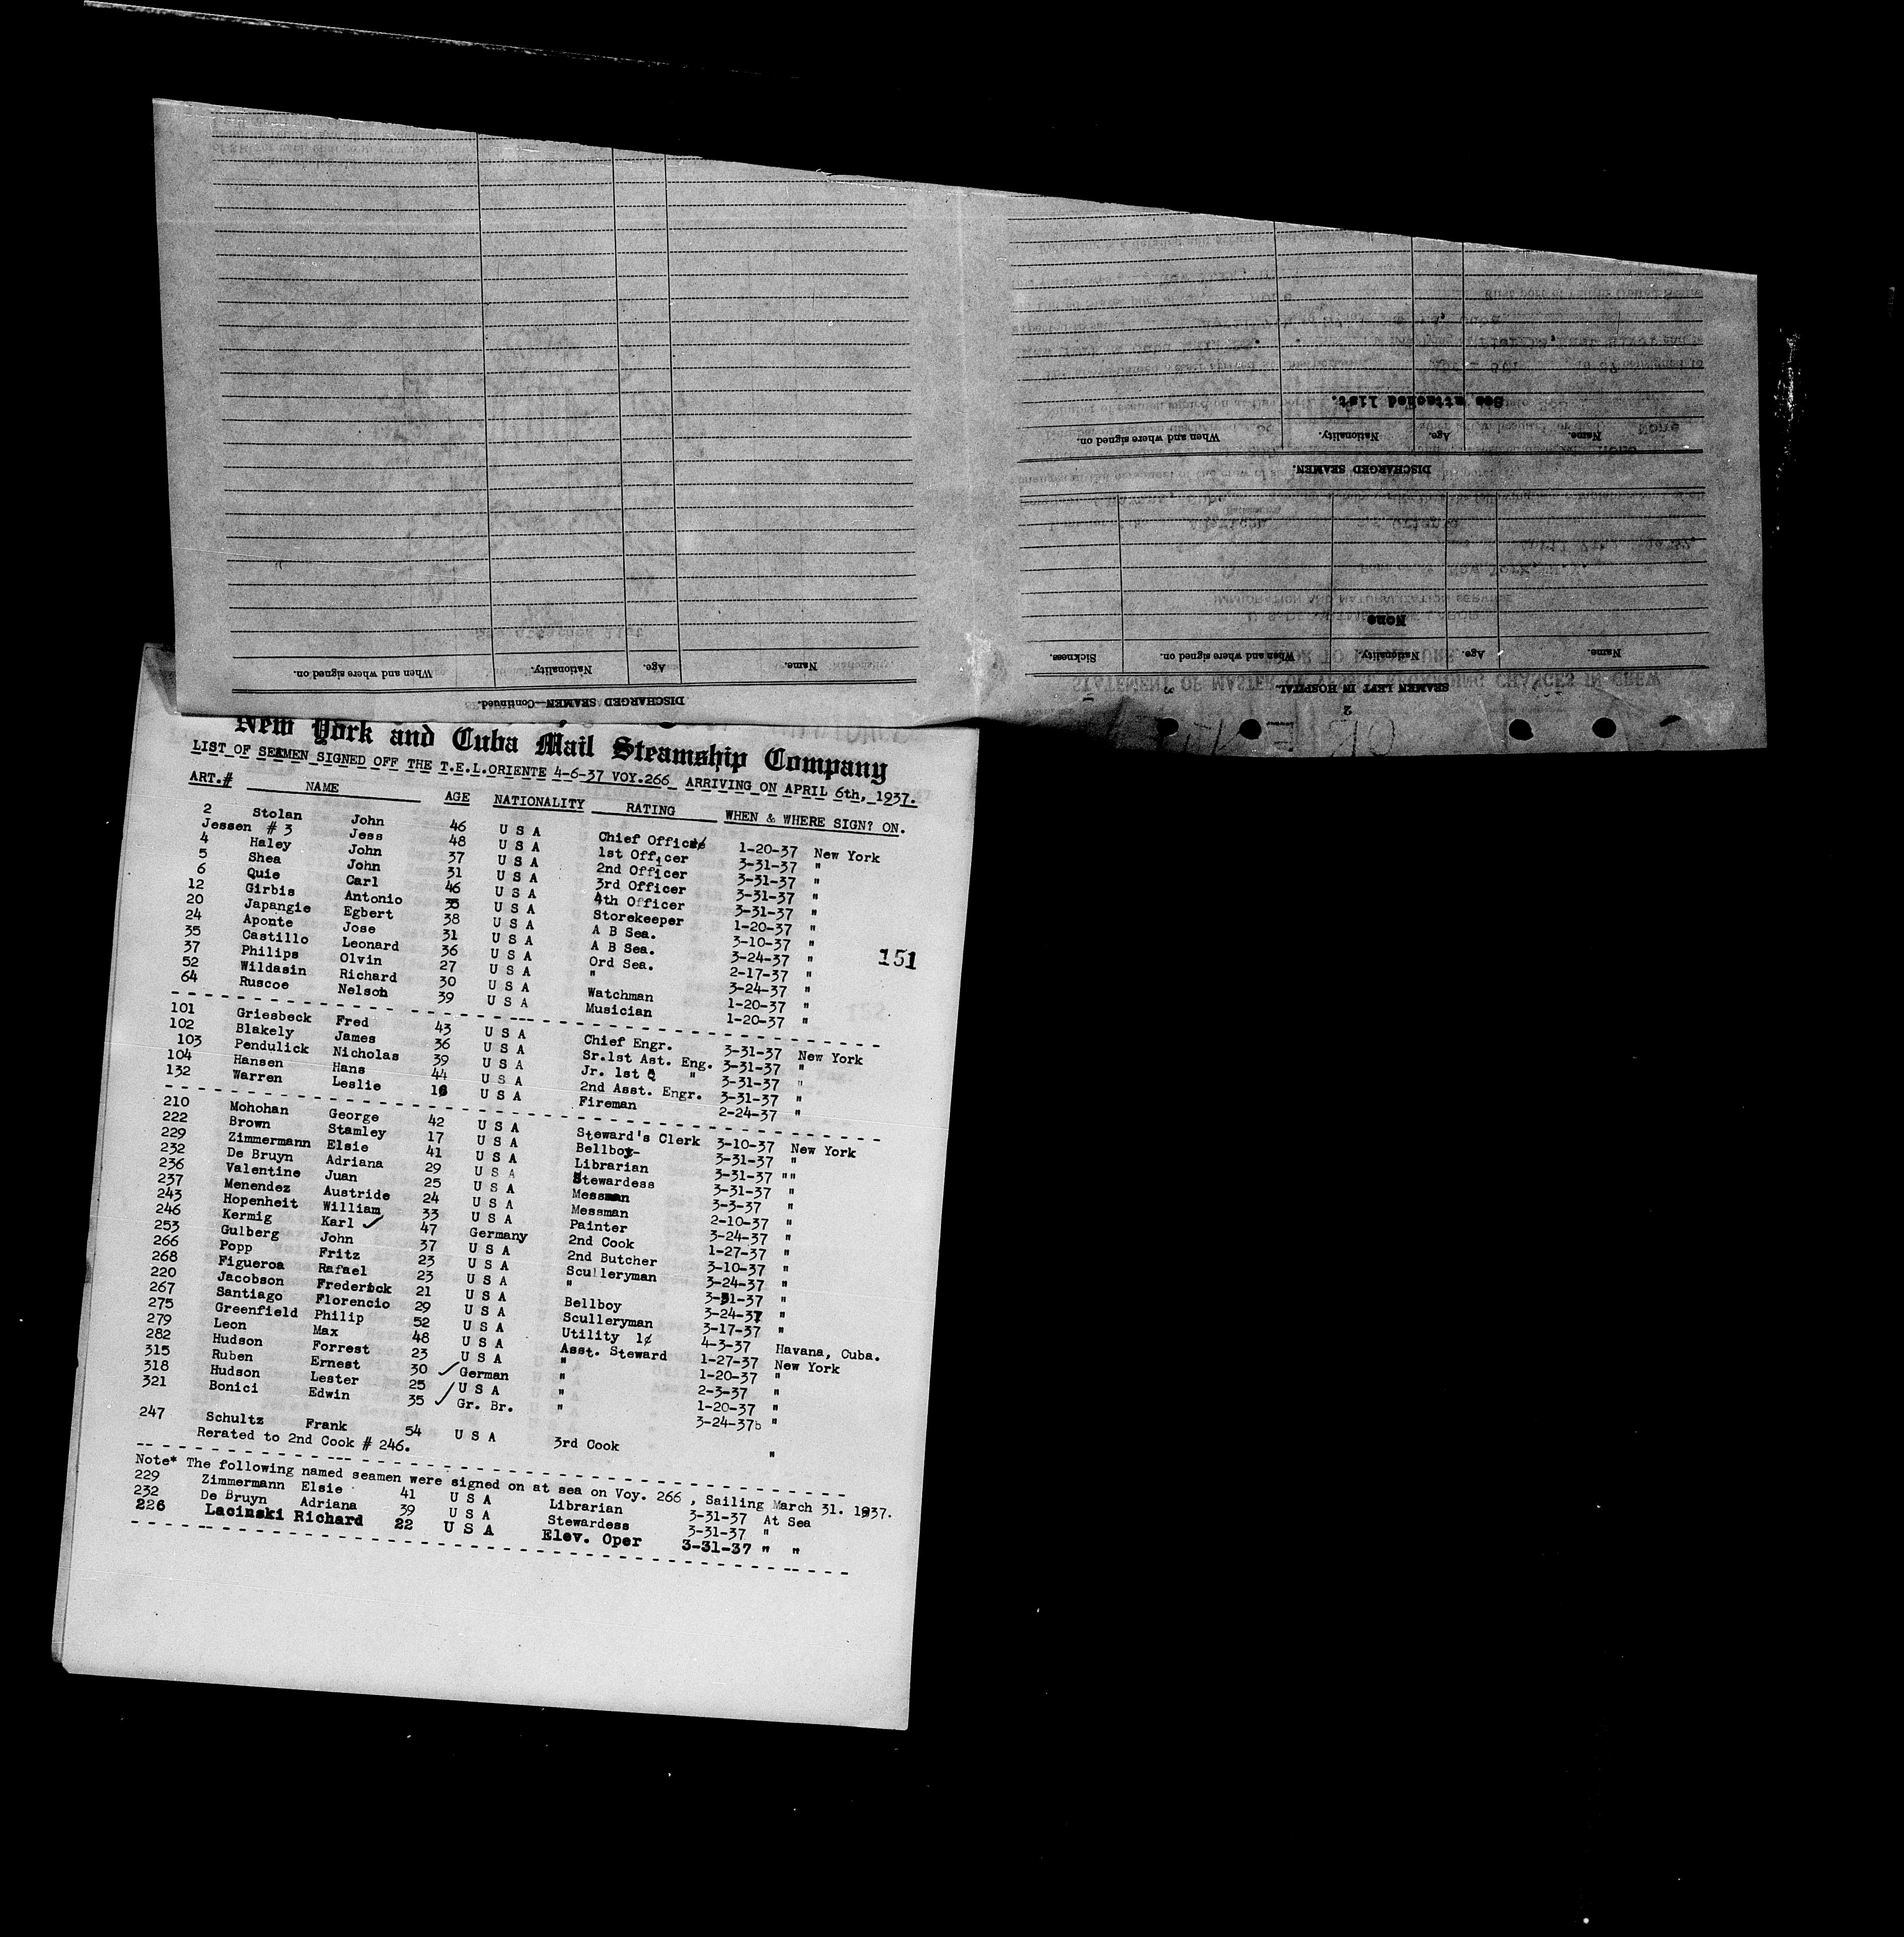 New York and Cuba Mail Steamship Company
LIST OF SEAMEN SIGNED OFF THE T.E.L.ORIENTE 4-6-37 VOY.266 ARRIVING ON APRIL 6th, 1937.
ART.# NAME AGE NATIONALITY RATING WHEN & WHERE SIGN? ON.
2 Stolan John 46 U S A Chief Office 1-20-37 New York
Jessen # 3 Jess 48 U S A 1st Officer 3-31-37 "
4 Haley John 37 U S A 2nd Officer 3-31-37 "
5 Shea John 31 U S A 3rd Officer 3-31-37 "
6 Quie Carl 46 U S A 4th Officer 3-31-37 "
12 Girbis Antonio 35 U S A Storekeeper 1-20-37 "
20 Japangie Egbert 38 U S A A B Sea. 3-10-37 "
24 Aponte Jose 31 U S A A B Sea. 3-24-37 "
35 Castillo Leonard 36 U S A Ord Sea. 2-17-37 "
37 Philips Olvin 27 U S A " 3-24-37 "
52 Wildasin Richard 30 U S A Watchman 1-20-37 "
64 Ruscoe Nelson 39 U S A Musician 1-20-37 "
151
101 Griesbeck Fred 43 U S A Chief Engr. 3-31-37 New York
102 Blakely James 36 U S A Sr.1st Ast. Eng. 3-31-37 "
103 Pendulick Nicholas 39 U S A Jr. 1st " 3-31-37 "
104 Hansen Hans 44 U S A 2nd Asst. Engr. 3-31-37 "
132 Warren Leslie 18 U S A Fireman 2-24-37 "
210 Mohohan George 42 U S A Steward's Clerk 3-10-37 New York
222 Brown Stamley 17 U S A Bellboy- 3-31-37 "
229 Zimmermann Elsie 41 U S A Librarian 3-31-37 ""
232 De Bruyn Adriana 29 U S A Stewardess 3-31-37 "
236 Valentine Juan 25 U S A Messman 3-3-37 "
237 Menendez Austride 24 U S A Messman 2-10-37 "
243 Hopenheit William 33 U S A Painter 3-24-37 "
246 Kermig Karl ✓ 47 Germany 2nd Cook 1-27-37 "
253 Gulberg John 37 U S A 2nd Butcher 3-10-37 "
266 Popp Fritz 23 U S A Sculleryman 3-24-37 "
268 Figueroa Rafael 23 U S A " 3-31-37 "
220 Jacobson Frederick 21 U S A Bellboy 3-24-37 "
267 Santiago Florencio 29 U S A Sculleryman 3-17-37 "
275 Greenfield Philip 52 U S A Utility 4-3-37 Havana, Cuba.
279 Leon Max 48 U S A Asst. Steward 1-27-37 New York
282 Hudson Forrest 23 U S A " 1-20-37 "
315 Ruben Ernest 30 ✓ German " 2-3-37 "
318 Hudson Lester 25 U S A " 1-20-37 "
321 Bonici Edwin 35 ✓ Gr. Br. " 3-24-37b "
247 Schultz Frank 54 U S A 3rd Cook "
Rerated to 2nd Cook # 246.
Note* The following named seamen were signed on at sea on Voy. 266 , Sailing March 31. 1937.
229 Zimmermann Elsie 41 U S A Librarian 3-31-37 At Sea
232 De Bruyn Adriana 39 U S A Stewardess 3-31-37 "
226 Lacinski Richard 22 U S A Elev. Oper 3-31-37 " "
2
SEAMEN LEFT IN HOSPITAL.
Name. Age. Nationality. When and where signed on. Sickness.
None
DISCHARGED SEAMEN.
Name. Age. Nationality. When and where signed on.
See attached list.
3
DISCHARGED SEAMEN—Continued.
Name. Age. Nationality. When and where signed on.